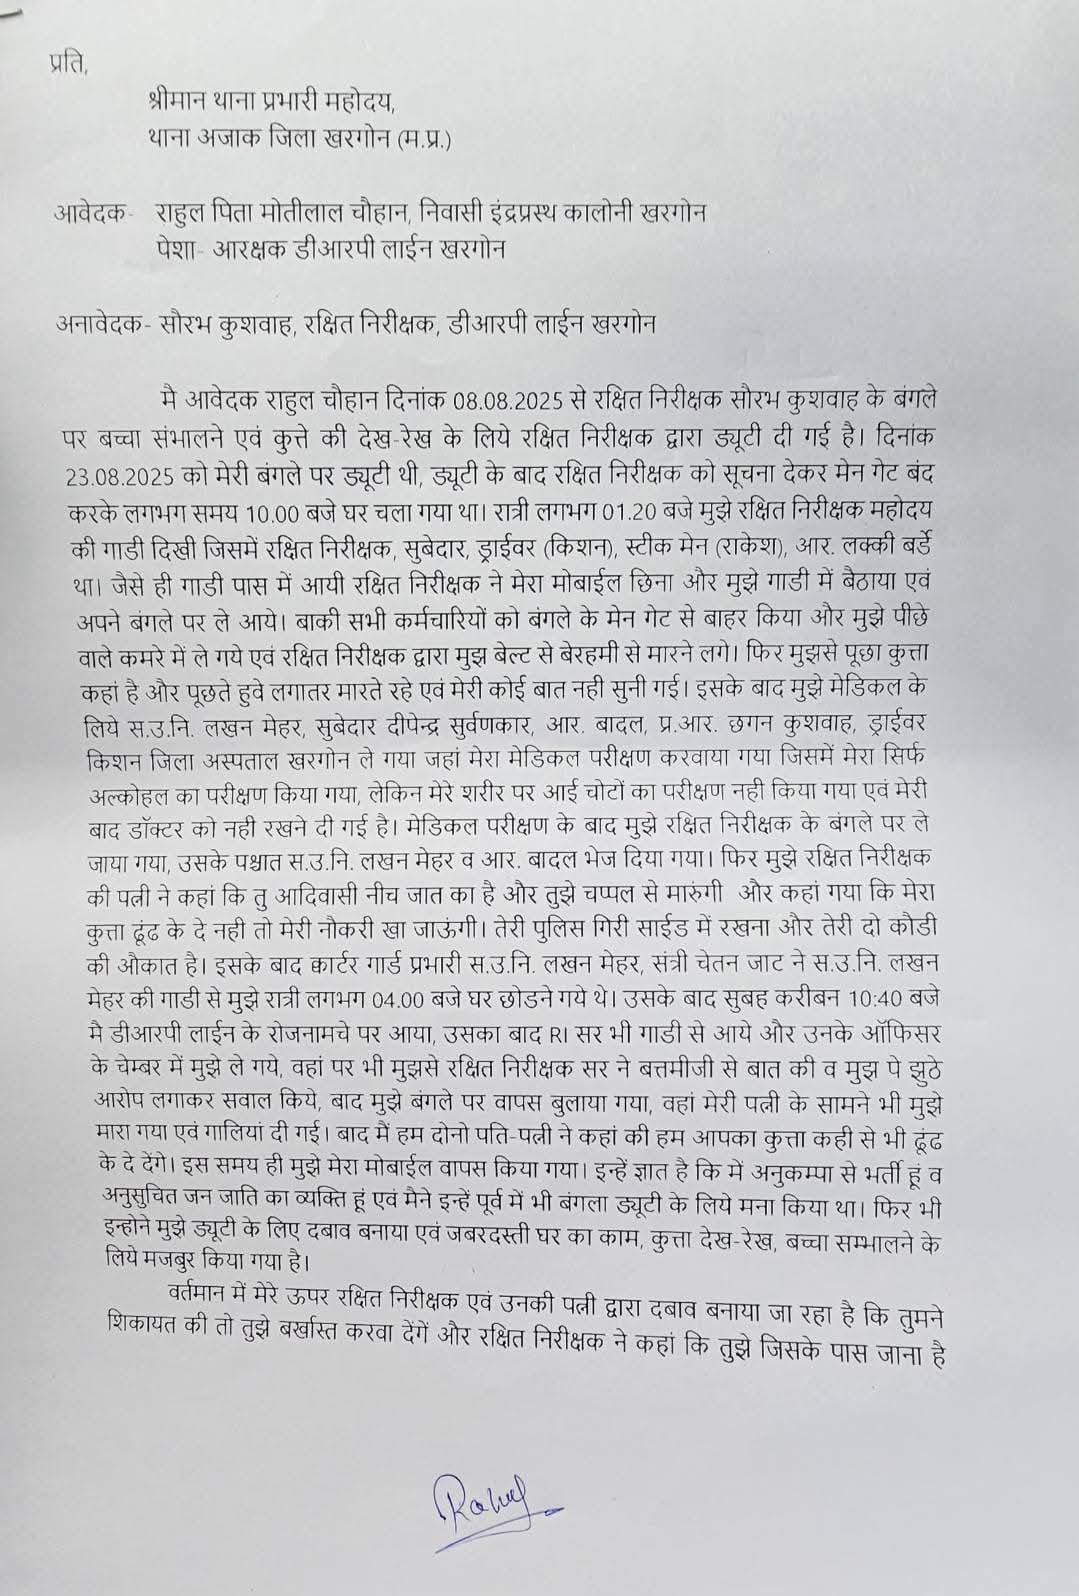 प्रति,
श्रीमान थाना प्रभारी महोदय,
थाना अजाक जिला खरगोन (म.प्र.)
आवेदक- राहुल पिता मोतीलाल चौहान, निवासी इंद्रप्रस्थ कालोनी खरगोन
पेशा- आरक्षक डीआरपी लाईन खरगोन
अनावेदक- सौरभ कुशवाह, रक्षित निरीक्षक, डीआरपी लाईन खरगोन
मै आवेदक राहुल चौहान दिनांक 08.08.2025 से रक्षित निरीक्षक सौरभ कुशवाह के बंगले
पर बच्चा संभालने एवं कुत्ते की देख-रेख के लिये रक्षित निरीक्षक द्वारा ड्यूटी दी गई है। दिनांक
23.08.2025 को मेरी बंगले पर ड्यूटी थी, ड्यूटी के बाद रक्षित निरीक्षक को सूचना देकर मेन गेट बंद
करके लगभग समय 10.00 बजे घर चला गया था। रात्री लगभग 01.20 बजे मुझे रक्षित निरीक्षक महोदय
की गाडी दिखी जिसमें रक्षित निरीक्षक, सुबेदार, ड्राईवर (किशन), स्टीक मेन (राकेश), आर. लक्की बर्डे
था। जैसे ही गाडी पास में आयी रक्षित निरीक्षक ने मेरा मोबाईल छिना और मुझे गाडी में बैठाया एवं
अपने बंगले पर ले आये। बाकी सभी कर्मचारियों को बंगले के मेन गेट से बाहर किया और मुझे पीछे
वाले कमरे में ले गये एवं रक्षित निरीक्षक द्वारा मुझ बेल्ट से बेरहमी से मारने लगे। फिर मुझसे पूछा कुत्ता
कहां है और पूछते हुवे लगातर मारते रहे एवं मेरी कोई बात नही सुनी गई। इसके बाद मुझे मेडिकल के
लिये स.उ.नि. लखन मेहर, सुबेदार दीपेन्द्र सुर्वणकार, आर. बादल, प्र.आर. छगन कुशवाह, ड्राईवर
किशन जिला अस्पताल खरगोन ले गया जहां मेरा मेडिकल परीक्षण करवाया गया जिसमें मेरा सिर्फ
अल्कोहल का परीक्षण किया गया, लेकिन मेरे शरीर पर आई चोटों का परीक्षण नही किया गया एवं मेरी
बाद डॉक्टर को नही रखने दी गई है। मेडिकल परीक्षण के बाद मुझे रक्षित निरीक्षक के बंगले पर ले
जाया गया, उसके पश्चात स.उ.नि. लखन मेहर व आर. बादल भेज दिया गया। फिर मुझे रक्षित निरीक्षक
की पत्नी ने कहां कि तु आदिवासी नीच जात का है और तुझे चप्पल से मारुंगी और कहां गया कि मेरा
कुत्ता ढूंढ के दे नही तो मेरी नौकरी खा जाऊंगी। तेरी पुलिस गिरी साईड में रखना और तेरी दो कौडी
की औकात है। इसके बाद क्वार्टर गार्ड प्रभारी स.उ.नि. लखन मेहर, संत्री चेतन जाट ने स.उ.नि. लखन
मेहर की गाडी से मुझे रात्री लगभग 04.00 बजे घर छोडने गये थे। उसके बाद सुबह करीबन 10:40 बजे
मै डीआरपी लाईन के रोजनामचे पर आया, उसका बाद RI सर भी गाडी से आये और उनके ऑफिसर
के चेम्बर में मुझे ले गये, वहां पर भी मुझसे रक्षित निरीक्षक सर ने बत्तमीजी से बात की व मुझ पे झुठे
आरोप लगाकर सवाल किये, बाद मुझे बंगले पर वापस बुलाया गया, वहां मेरी पत्नी के सामने भी मुझे
मारा गया एवं गालियां दी गई। बाद मैं हम दोनो पति-पत्नी ने कहां की हम आपका कुत्ता कही से भी ढूंढ
के दे देंगे। इस समय ही मुझे मेरा मोबाईल वापस किया गया। इन्हें ज्ञात है कि में अनुकम्पा से भर्ती हूं व
अनुसुचित जन जाति का व्यक्ति हूं एवं मैने इन्हें पूर्व में भी बंगला ड्यूटी के लिये मना किया था। फिर भी
इन्होने मुझे ड्यूटी के लिए दबाव बनाया एवं जबरदस्ती घर का काम, कुत्ता देख-रेख, बच्चा सम्भालने के
लिये मजबुर किया गया है।
वर्तमान में मेरे ऊपर रक्षित निरीक्षक एवं उनकी पत्नी द्वारा दबाव बनाया जा रहा है कि तुमने
शिकायत की तो तुझे बर्खास्त करवा देंगें और रक्षित निरीक्षक ने कहां कि तुझे जिसके पास जाना है
Rahul